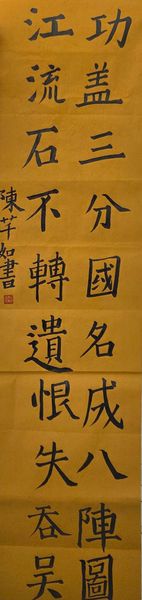 功盖三分國名成八陣圖
江流石不轉遺恨失吞吴
陳芊如書